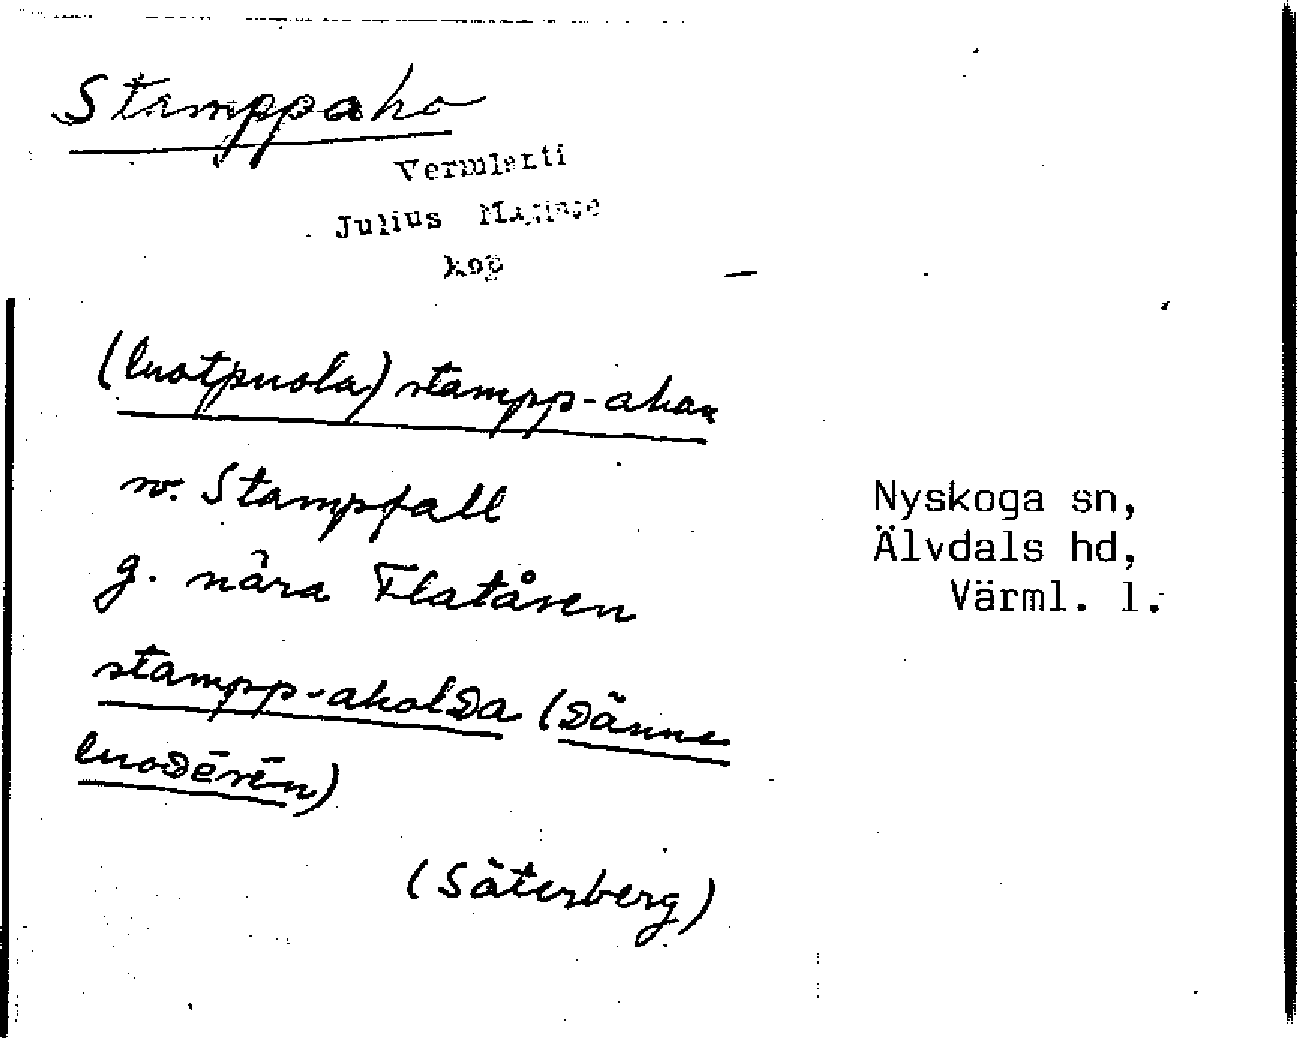 Stamppaho
Vermlanti
Julius Mägiste
kop
(luotpuola) stampp-ahon
nv. Stampfall
g. nära Flatåsen
stampp-aholDa (Dänne
luoDērēn)
(Säterberg)
Nyskoga sn,
Älvdals hd,
Värml. l.